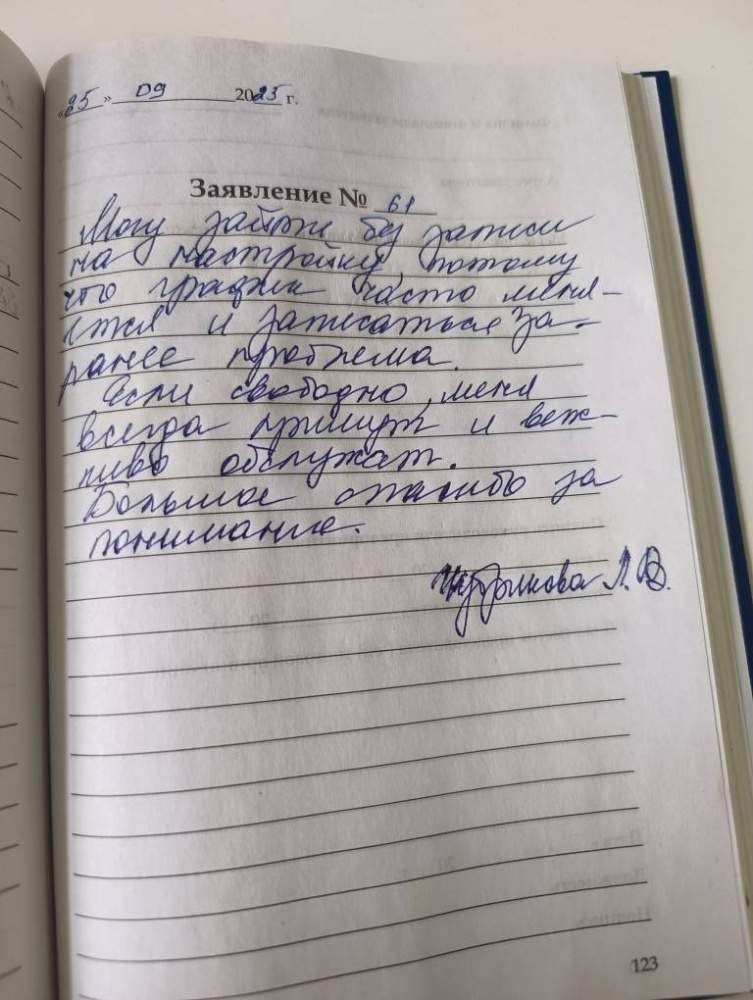 «25» 09 2025 г.
Заявление № 61
Могу зайти без записи
на настройку, потому
что график часто меня-
ется и записаться за-
ранее проблема.
Если свободно, меня
всегда примут и веж-
ливо обслужат.
Большое спасибо за
понимание.
Л. В.
123